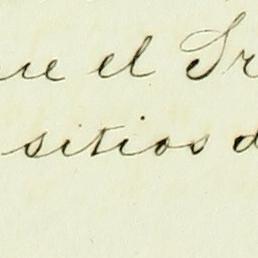 ue el Sr
sitios d